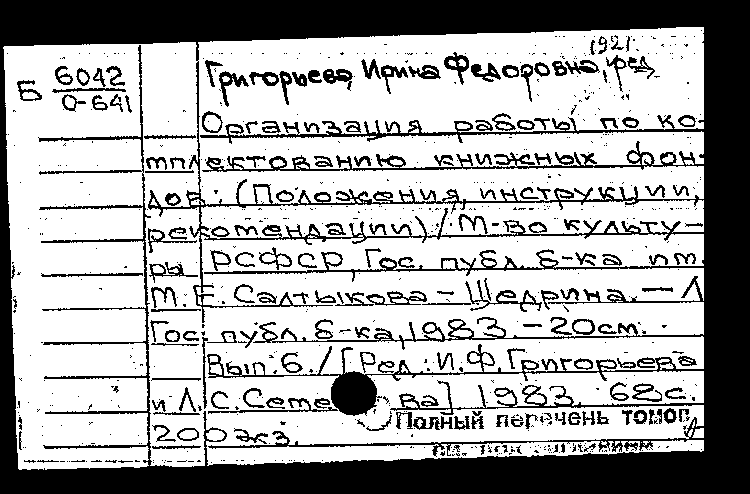 1921
Григорьева, Ирина Федоровна, ред.
Б 6042
О-641
Организация работы по ко-
мплектованию книжных фон-
дов: (Положения, инструкции,
рекомендации) / М-во культу-
ры РСФСР, Гос. публ. б-ка им.
М.Е. Салтыкова-Щедрина. — Л
Гос. публ. б-ка, 1983. - 20 см.
Вып. 6. / [Ред.: И.Ф. Григорьева
и Л.С. ва] 1983. 68 с.
Полный перечень томов
200 экз.
см. под